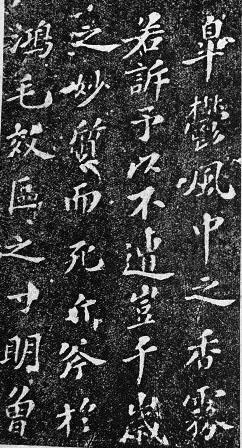 皐鬱風中之香霧
若訴予以不遭豈千歲
之妙質而死斤斧於
鴻毛效區之寸明曾